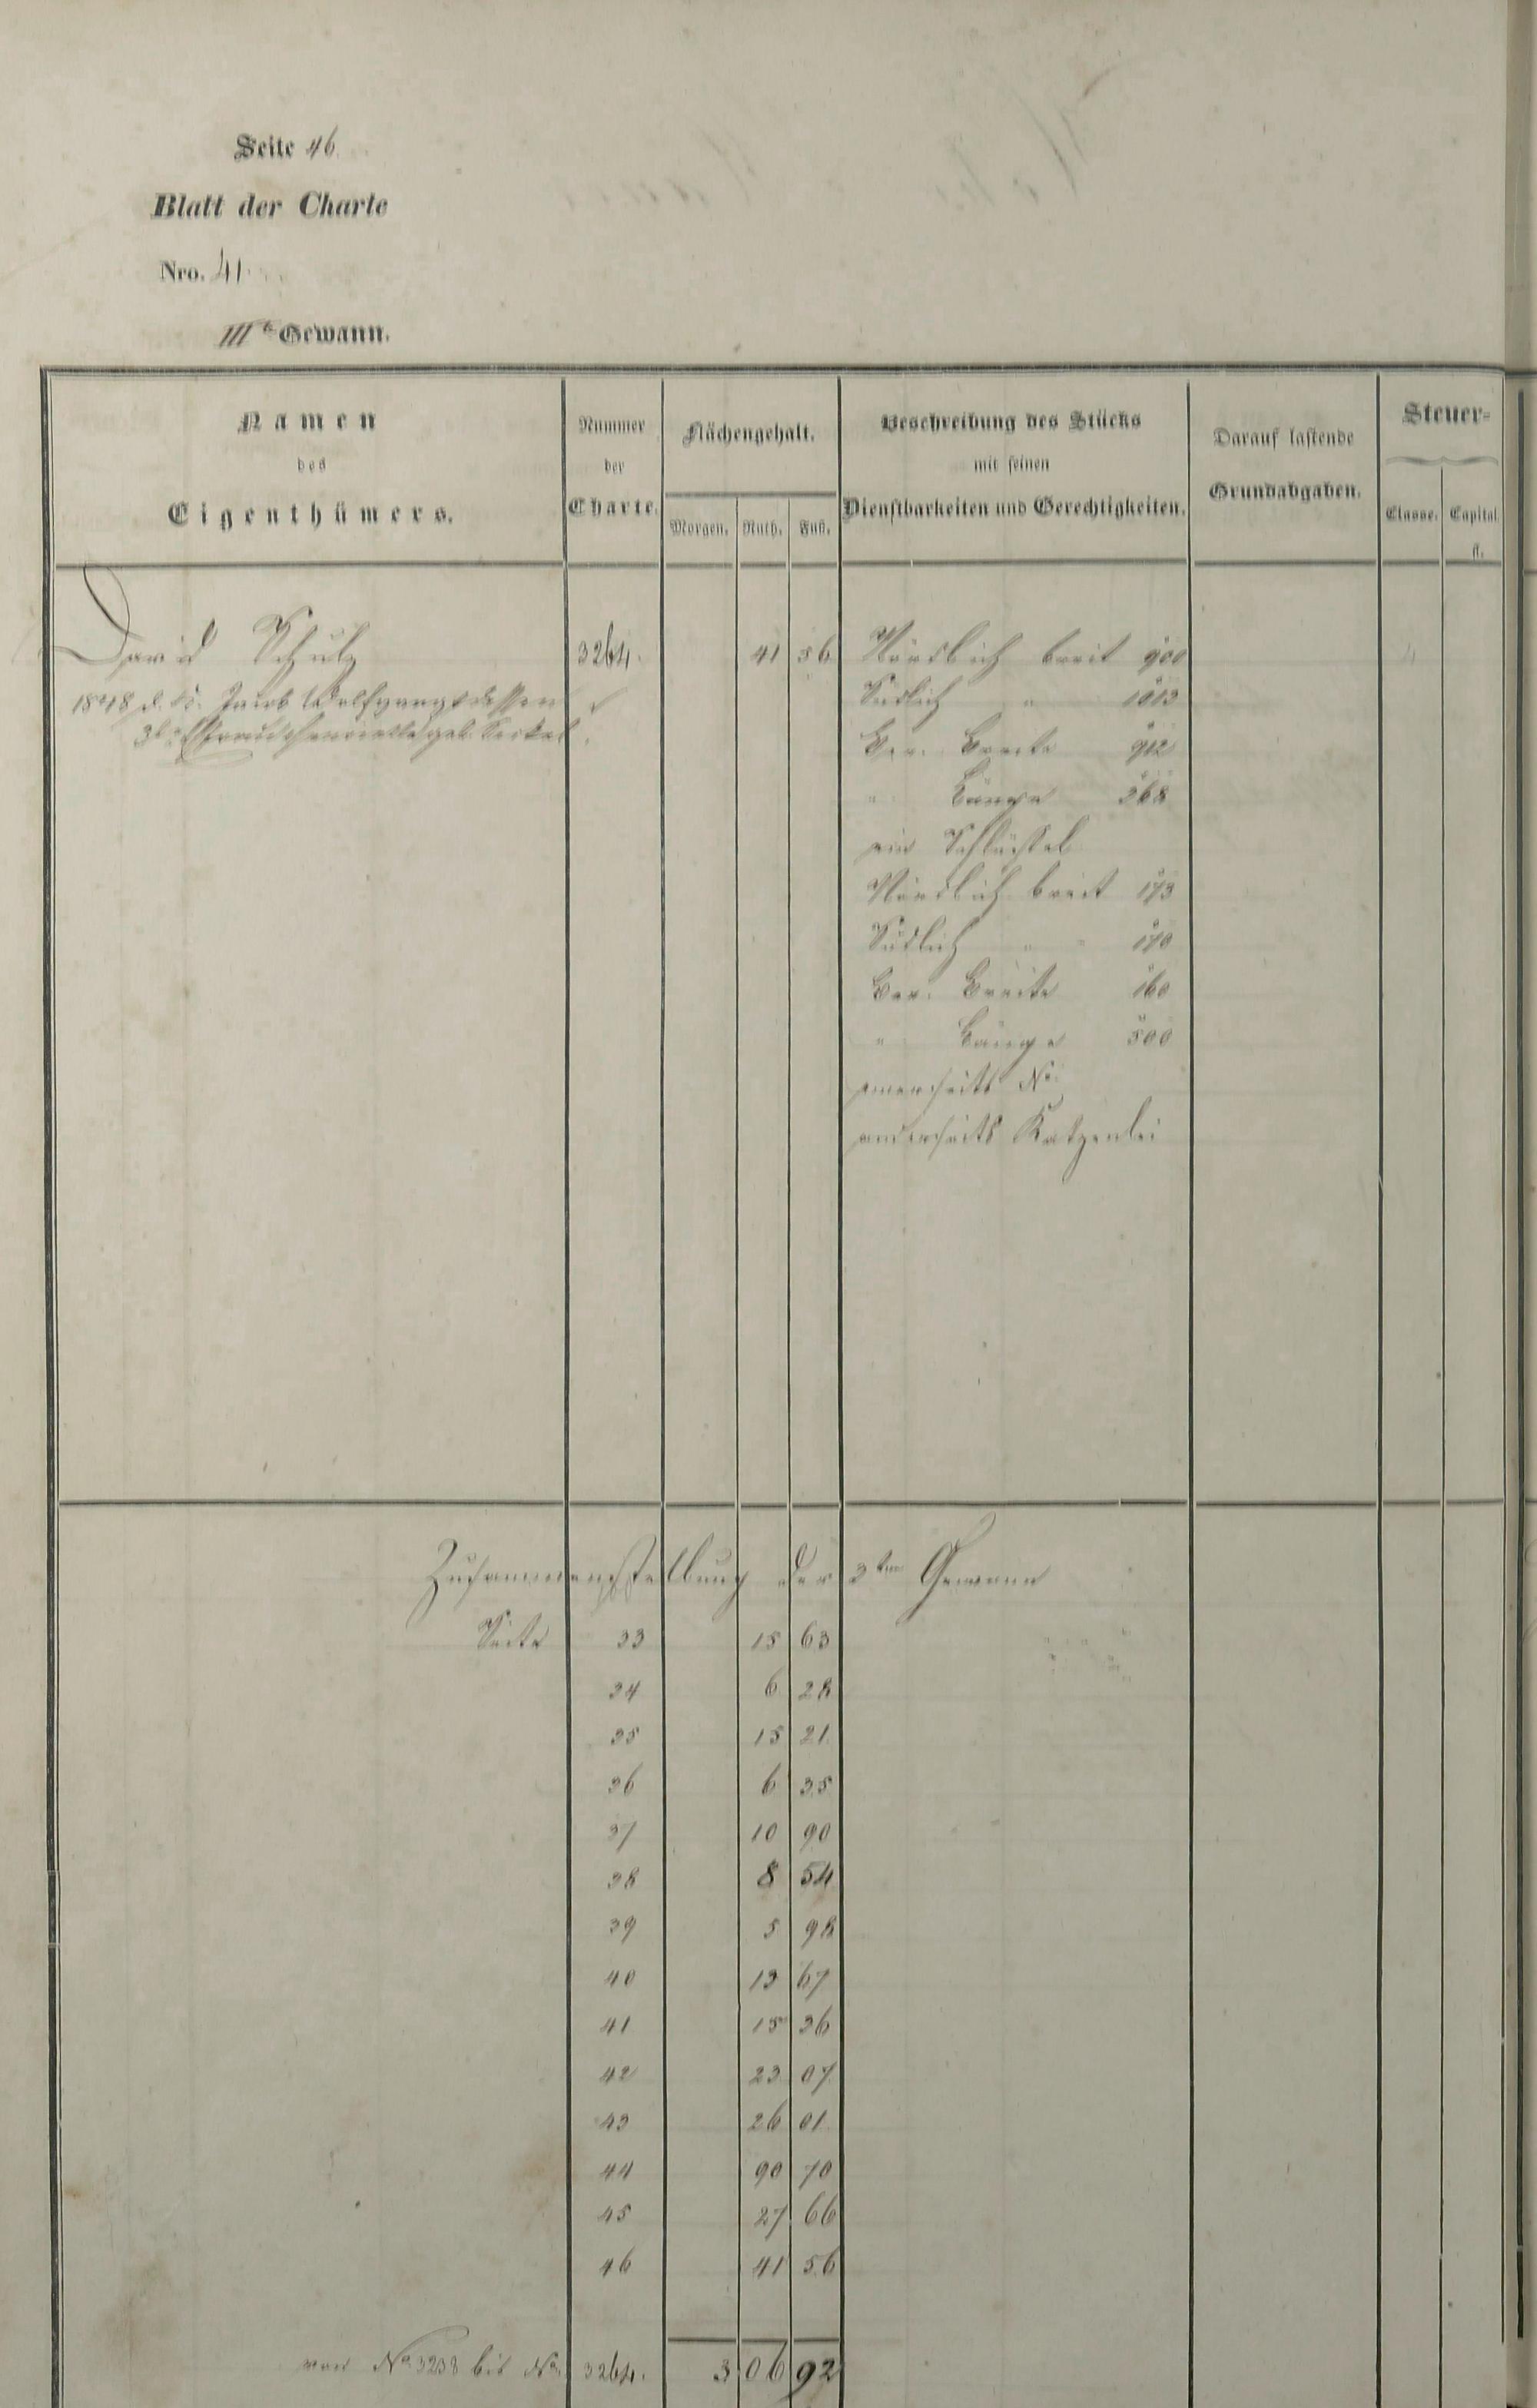 Seite 46
Blatt der Charte
Nro. 41
IIIte Gewann.
Namen des Eigenthümers.
Nummer der Charte.
Flächengehalt.
Morgen. Ruth. Fuß.
Beschreibung des Stücks mit seinen Dienstbarkeiten und Gerechtigkeiten.
Darauf lastende Grundabgaben.
Steuer-
Classe. Capital fl.
David Schulz 3264. 41 56 Nördlich breit 900
1848 Jacob Wolfgang dessen Südlich " 1013
geb. Seckel Ber. Breite 912
" Länge 368
ein Schlüssel
Nördlich breit 173
Südlich " " 170
Ber. Breite 160
" Länge 500
einerseits No.
anderseits Katzenlei
Zusammenstellung der 3ten Gewann
Seite 33 15 63
34 6 28
35 15 21
36 6 35
37 10 90
38 8 54
39 5 98
40 13 67
41 15 36
42 23 07
43 26 01
44 90 70
45 27 66
46 41 56
von No 3238 bis No. 3264. 3 06 92